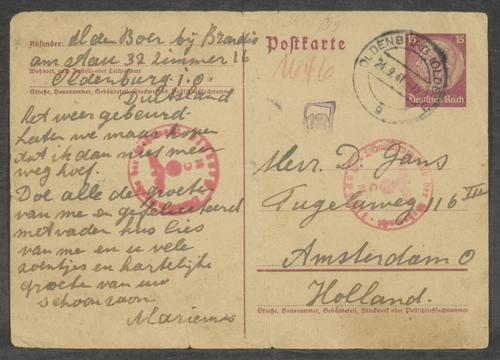 Absender: M den Boer bij Brandis
am Stau 32 Zimmer 16
Wohnort, auch Zustell- oder Leitpostamt
Oldenburg i.O.
Straße, Hausnummer, Gebäudeteil, Stockwerk oder Postschließfachnummer
Duitsland
weer gebeurd
laten we maar hopen
dat ik dan niet meer
weg hoef.
Doe alle de groeten
van me en gefeliciteerd
met vader
van me en u vele
zoentjes en hartelijke
groeten van uw
schoonzoon
Postkarte
1646
OLDENBURG (OLDB)
24.9.41
15
15
Deutsches Reich
Herr D. Gans
Tugelaweg 116 III
Amsterdam O
Holland.
Straße, Hausnummer, Gebäudeteil, Stockwerk oder Postschließfachnummer